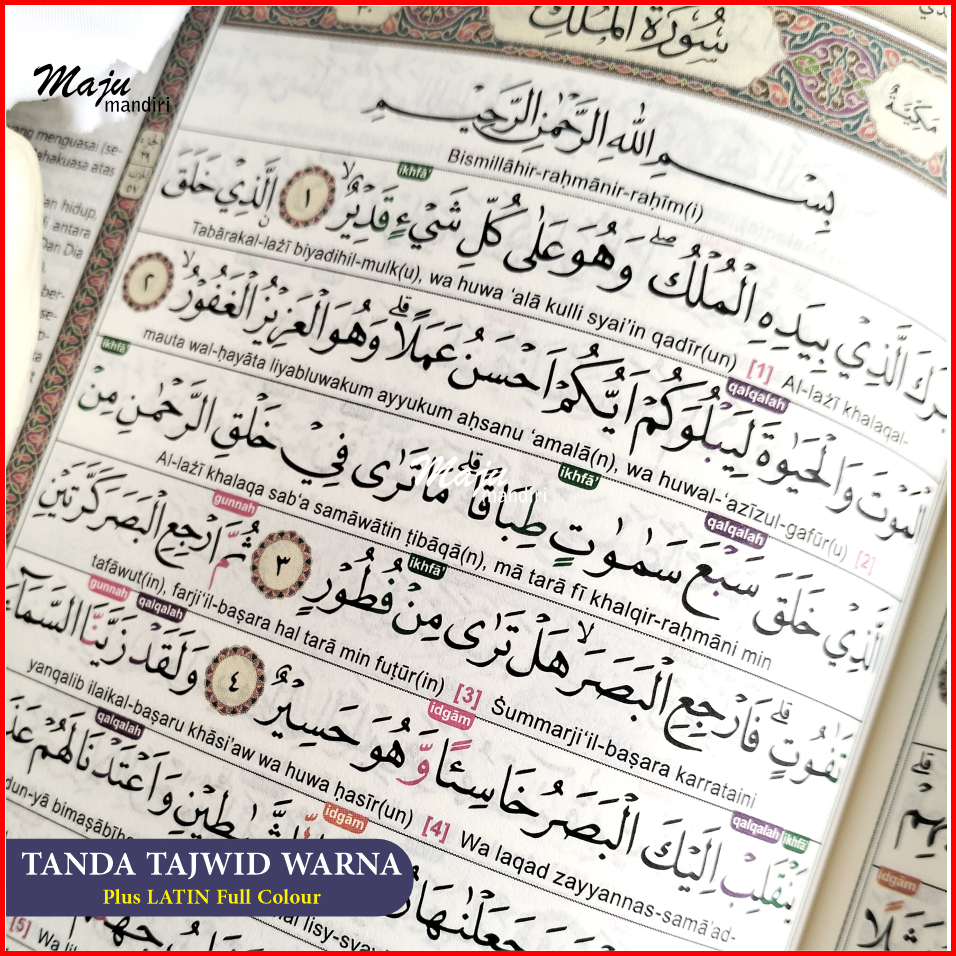 Maju
mandiri
سُورَةُ الْمُلْكِ
مَكِّيَّةٌ
بِسْمِ اللّٰهِ الرَّحْمٰنِ الرَّحِيْمِ
Bismillāhir-raḥmānir-raḥīm(i)
ikhfā'
الَّذِيْ بِيَدِهِ الْمُلْكُ ۖ وَهُوَ عَلٰى كُلِّ شَيْءٍ قَدِيْرٌ ۙ ١ الَّذِيْ خَلَقَ
Tabārakal-lażī biyadihil-mulk(u), wa huwa ‘alā kulli syai'in qadīr(un) [1] Al-lażī khalaqal-
qalqalah
الْمَوْتَ وَالْحَيٰوةَ لِيَبْلُوَكُمْ اَيُّكُمْ اَحْسَنُ عَمَلًا ۗ وَهُوَ الْعَزِيْزُ الْغَفُوْرُ ۙ ٢
mauta wal-ḥayāta liyabluwakum ayyukum aḥsanu ‘amalā(n), wa huwal-‘azīzul-gafūr(u) [2]
qalqalah ikhfā' ikhfā'
الَّذِيْ خَلَقَ سَبْعَ سَمٰوٰتٍ طِبَاقًا ۗ مَا تَرٰى فِيْ خَلْقِ الرَّحْمٰنِ مِنْ
Al-lażī khalaqa sab‘a samāwātin ṭibāqā(n), mā tarā fī khalqir-raḥmāni min
Maju
mandiri
ikhfā' gunnah
تَفٰوُتٍ ۗ فَارْجِعِ الْبَصَرَ ۙ هَلْ تَرٰى مِنْ فُطُوْرٍ ٣ ثُمَّ ارْجِعِ الْبَصَرَ كَرَّتَيْنِ
tafāwut(in), farji‘il-baṣara hal tarā min fuṭūr(in) [3] Ṡummarji‘il-baṣara karrataini
qalqalah ikhfā' idgām qalqalah gunnah
يَنْقَلِبْ اِلَيْكَ الْبَصَرُ خَاسِئًا وَّهُوَ حَسِيْرٌ ٤ وَلَقَدْ زَيَّنَّا السَّمَاۤءَ
yanqalib ilaikal-baṣaru khāsi'aw wa huwa ḥasīr(un) [4] Wa laqad zayyannas-samā'ad-
idgām qalqalah
وَاَعْتَدْنَا لَهُمْ
dun-yā
وَجَعَلْنٰهَا
[5]
idgām
TANDA TAJWID WARNA
Plus LATIN Full Colour